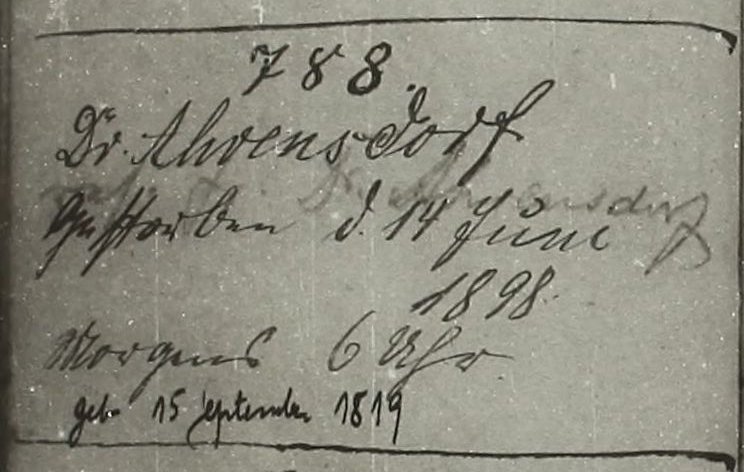 788.
Dr. Ahrensdorf
Dr. Ahrensdorf
Gestorben d. 14 Juni
1898.
Morgens 6 Uhr
geb. 15 September 1819